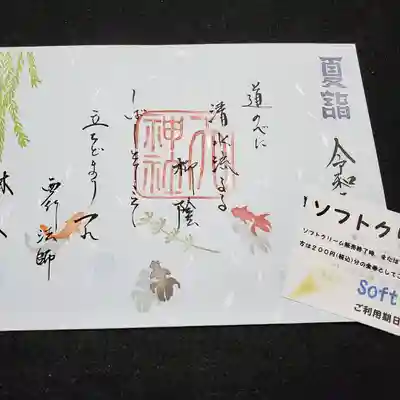 夏詣
令和
道のべに
清水流るる
柳陰
しばしとてこそ
立ちどまりつれ
西行法師
神社
ソフトク
ソフトクリーム販売終了時、または
方は200円(税込)分の金券としてご
Soft
ご利用期日